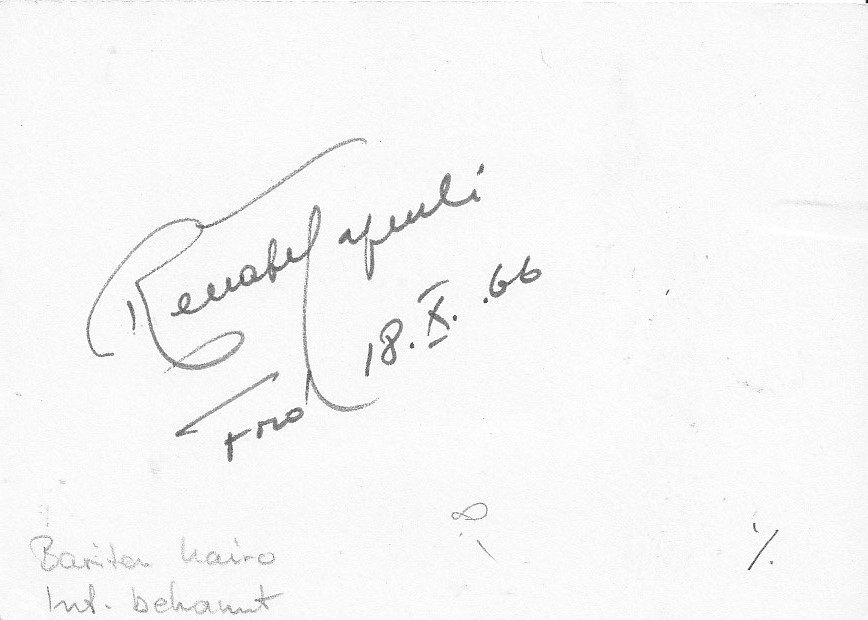 Renato Capecchi
18. X. .66
Bariton Kairo
Int. bekannt